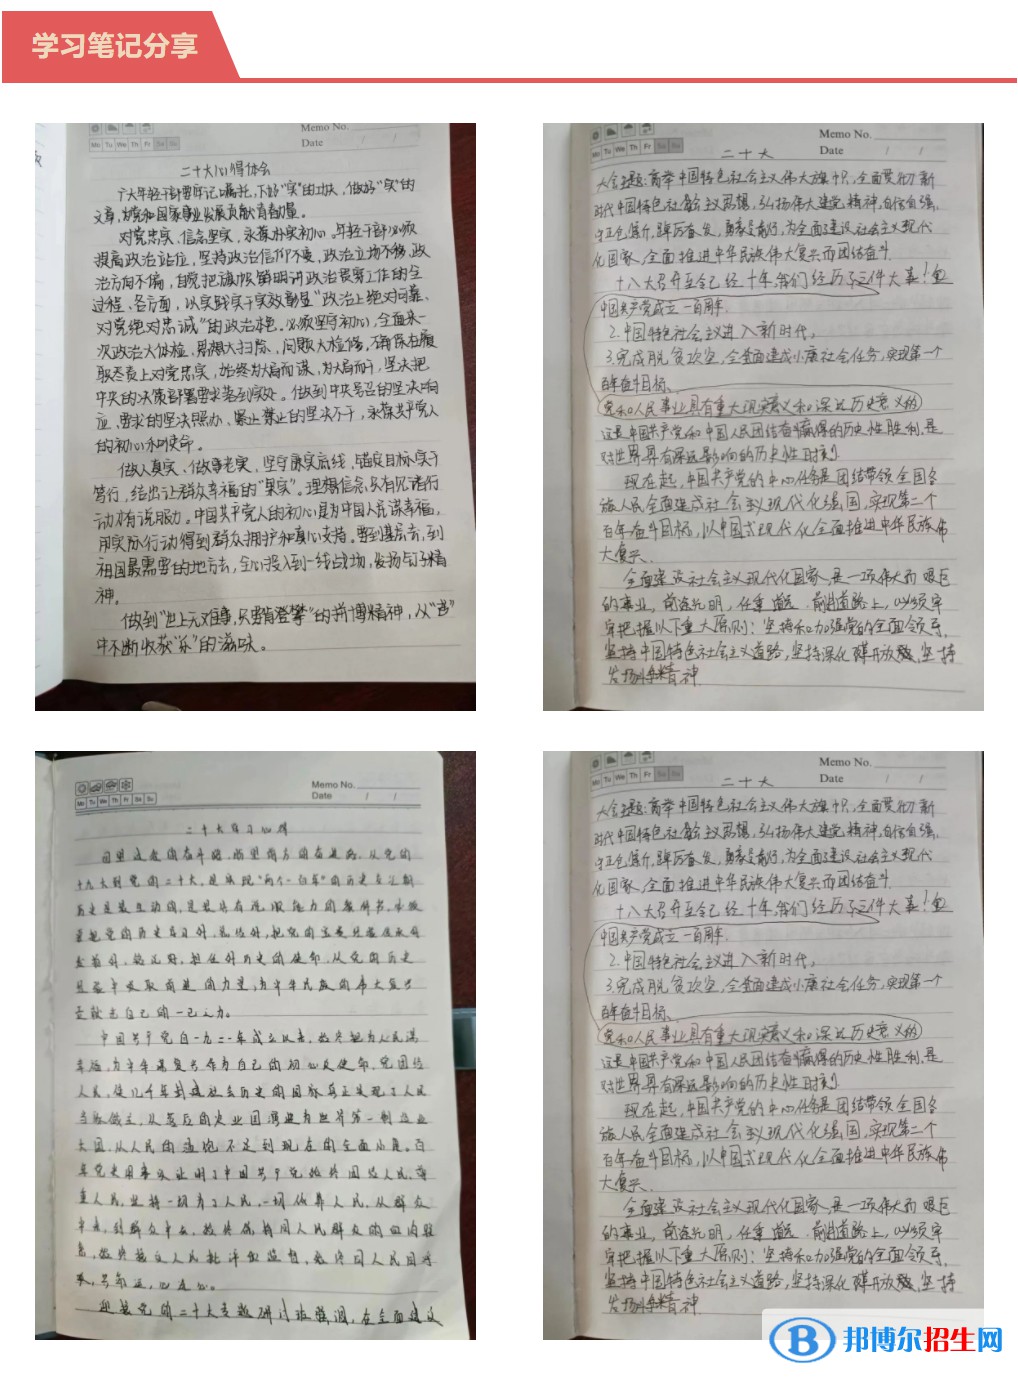 学习笔记分享
Memo No.
Date / /
Mo Tu We Th Fr Sa Su
二十大心得体会
广大年轻干部要牢记嘱托,下好"实"的功夫,做好"实"的
文章,为党和国家事业发展贡献青春力量。
对党忠实、信念坚实,永葆朴实初心。年轻干部必须
提高政治站位,坚持政治信仰不变,政治立场不移,政
治方向不偏,自觉把旗帜鲜明讲政治贯穿工作的全
过程、各方面,以实践实干实效彰显"政治上绝对可靠、
对党绝对忠诚"的政治本色。必须坚守初心,全面来一
次政治大体检、思想大扫除、问题大检修,确保在履
职尽责上对党忠实,始终为大局而谋,为大局而干,坚决把
中央的决策部署要求落到实处。做到中央号召的坚决响
应、要求的坚决照办、禁止的坚决不干,永葆共产党人
的初心和使命。
做人真实、做事老实,坚守廉实底线,锚定目标实干
笃行,结出让群众幸福的"果实"。理想信念,只有见诸行
动才有说服力。中国共产党人的初心是为中国人民谋幸福,
用实际行动得到群众拥护和真心支持。要到基层去,到
祖国最需要的地方去,全心投入到一线战场,发扬钉子精
神。
做到"世上无难事,只要肯登攀"的拼搏精神,从"苦"
中不断收获"乐"的滋味。
Memo No.
Date / /
Mo Tu We Th Fr Sa Su
二十大
大会主题:高举中国特色社会主义伟大旗帜,全面贯彻新
时代中国特色社会主义思想,弘扬伟大建党精神,自信自强、
守正创新,踔厉奋发、勇毅前行,为全面建设社会主义现代
化国家、全面推进中华民族伟大复兴而团结奋斗
十八大召开至今已经十年,我们经历了三件大事!
中国共产党成立一百周年.
2.中国特色社会主义进入新时代。
3.完成脱贫攻坚,全面建成小康社会任务,实现第一个
百年奋斗目标、
党和人民事业具有重大现实意义和深远历史意义的
这是中国共产党和中国人民团结奋斗赢得的历史性胜利,是
对世界具有深远影响的历史性时刻
现在起,中国共产党的中心任务是团结带领全国各
族人民全面建成社会主义现代化强国,实现第二个
百年奋斗目标,以中国式现代化全面推进中华民族伟
大复兴.
全面建设社会主义现代化国家,是一项伟大而艰巨
的事业,前途光明,任重道远.前进道路上,必须牢
牢把握以下重大原则:坚持和加强党的全面领导,
坚持中国特色社会主义道路,坚持深化改革开放,坚持
发扬斗争精神
Memo No.
Date / /
Mo Tu We Th Fr Sa Su
二十大学习心得
十九大到党的二十大,是实现"两个一百年"的历史交汇期
中国共产党自一九二一年成立以来,始终把为人民谋
幸福,为中华民族复兴作为自己的初心及使命,党团结
人民,
大国,从人民的温饱不足到现在的全面小康。百
年党史用事实证明了中国共产党始终团结人民,尊
重人民,坚持一切为了人民,一切依靠人民,从群众
中来,到群众中去,始终保持同人民群众的血肉联
系,始终接受人民批评和监督,始终同人民同呼
吸,共命运,心连心。
迎接党的二十大专题研讨班强调,在全面建设
Memo No.
Date / /
Mo Tu We Th Fr Sa Su
二十大
大会主题:高举中国特色社会主义伟大旗帜,全面贯彻新
时代中国特色社会主义思想,弘扬伟大建党精神,自信自强、
守正创新,踔厉奋发、勇毅前行,为全面建设社会主义现代
化国家、全面推进中华民族伟大复兴而团结奋斗
十八大召开至今已经十年,我们经历了三件大事!
中国共产党成立一百周年.
2.中国特色社会主义进入新时代。
3.完成脱贫攻坚,全面建成小康社会任务,实现第一个
百年奋斗目标、
党和人民事业具有重大现实意义和深远历史意义的
这是中国共产党和中国人民团结奋斗赢得的历史性胜利,是
对世界具有深远影响的历史性时刻
现在起,中国共产党的中心任务是团结带领全国各
族人民全面建成社会主义现代化强国,实现第二个
百年奋斗目标,以中国式现代化全面推进中华民族伟
大复兴.
全面建设社会主义现代化国家,是一项伟大而艰巨
的事业,前途光明,任重道远.前进道路上,必须牢
牢把握以下重大原则:坚持和加强党的全面领导,
坚持中国特色社会主义道路,坚持深化改革开放,坚持
发扬斗争精神
邦博尔招生网